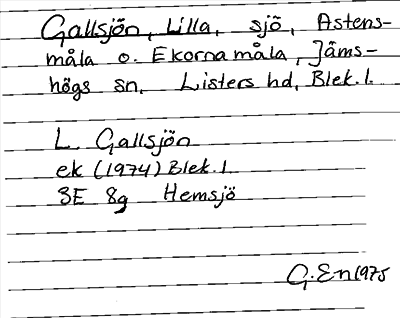 Gallsjön, Lilla, sjö, Astens-
måla o. Ekornamåla, Jäms-
högs sn, Listers hd, Blek.l.
L. Gallsjön
ek (1974) Blek.l.
3E 8g Hemsjö
G.En 1975